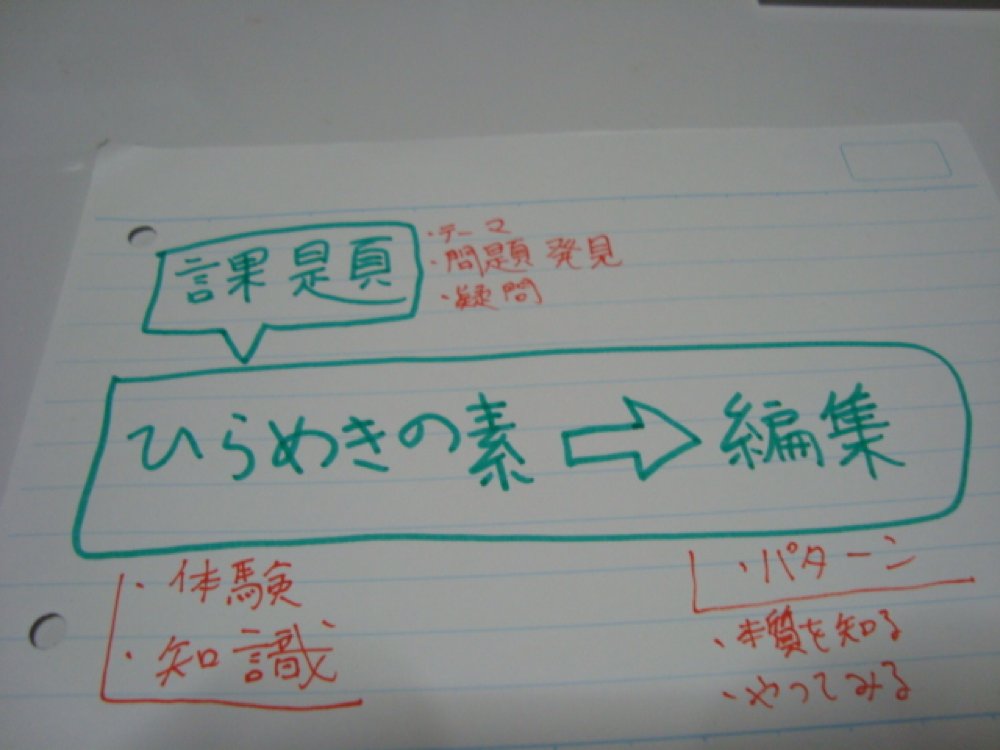 課題
・テーマ
・問題発見
・疑問
ひらめきの素⇨編集
・体験
・知識
・パターン
・本質を知る
・やってみる